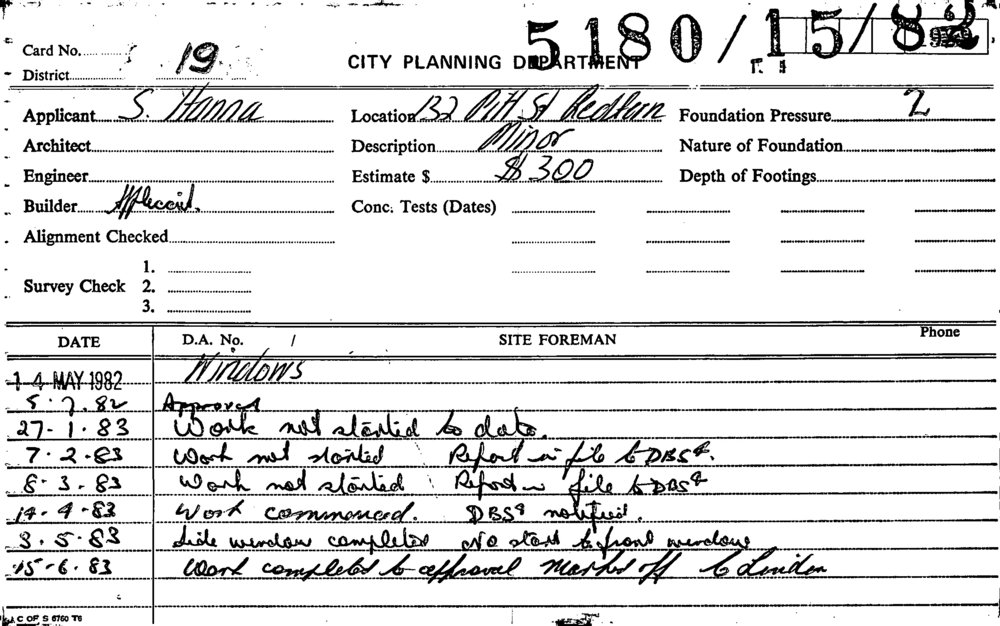 5180/15/82
Card No.
19
District
CITY PLANNING DEPARTMENT
Applicant S. Hanna
Location 132 Pitt St Redfern
Foundation Pressure 2
Architect
Description Minor
Nature of Foundation
Engineer
Estimate $ $300
Depth of Footings
Builder Applicant.
Conc. Tests (Dates)
Alignment Checked
Survey Check 1.
2.
3.
DATE D.A. No. / SITE FOREMAN Phone
14 MAY 1982 Windows
5.7.82 Approved
27-1.83 Work not started to date.
7.2.83 Work not started Report in file to DBS
8.3.83 Work not started Report in file to DBS
14.4.83 Work commenced. DBS notified.
3.5.83 Side window completed No start to front window
15-6.83 Work completed to approval marked off to Linden
C OF S 6760 T6